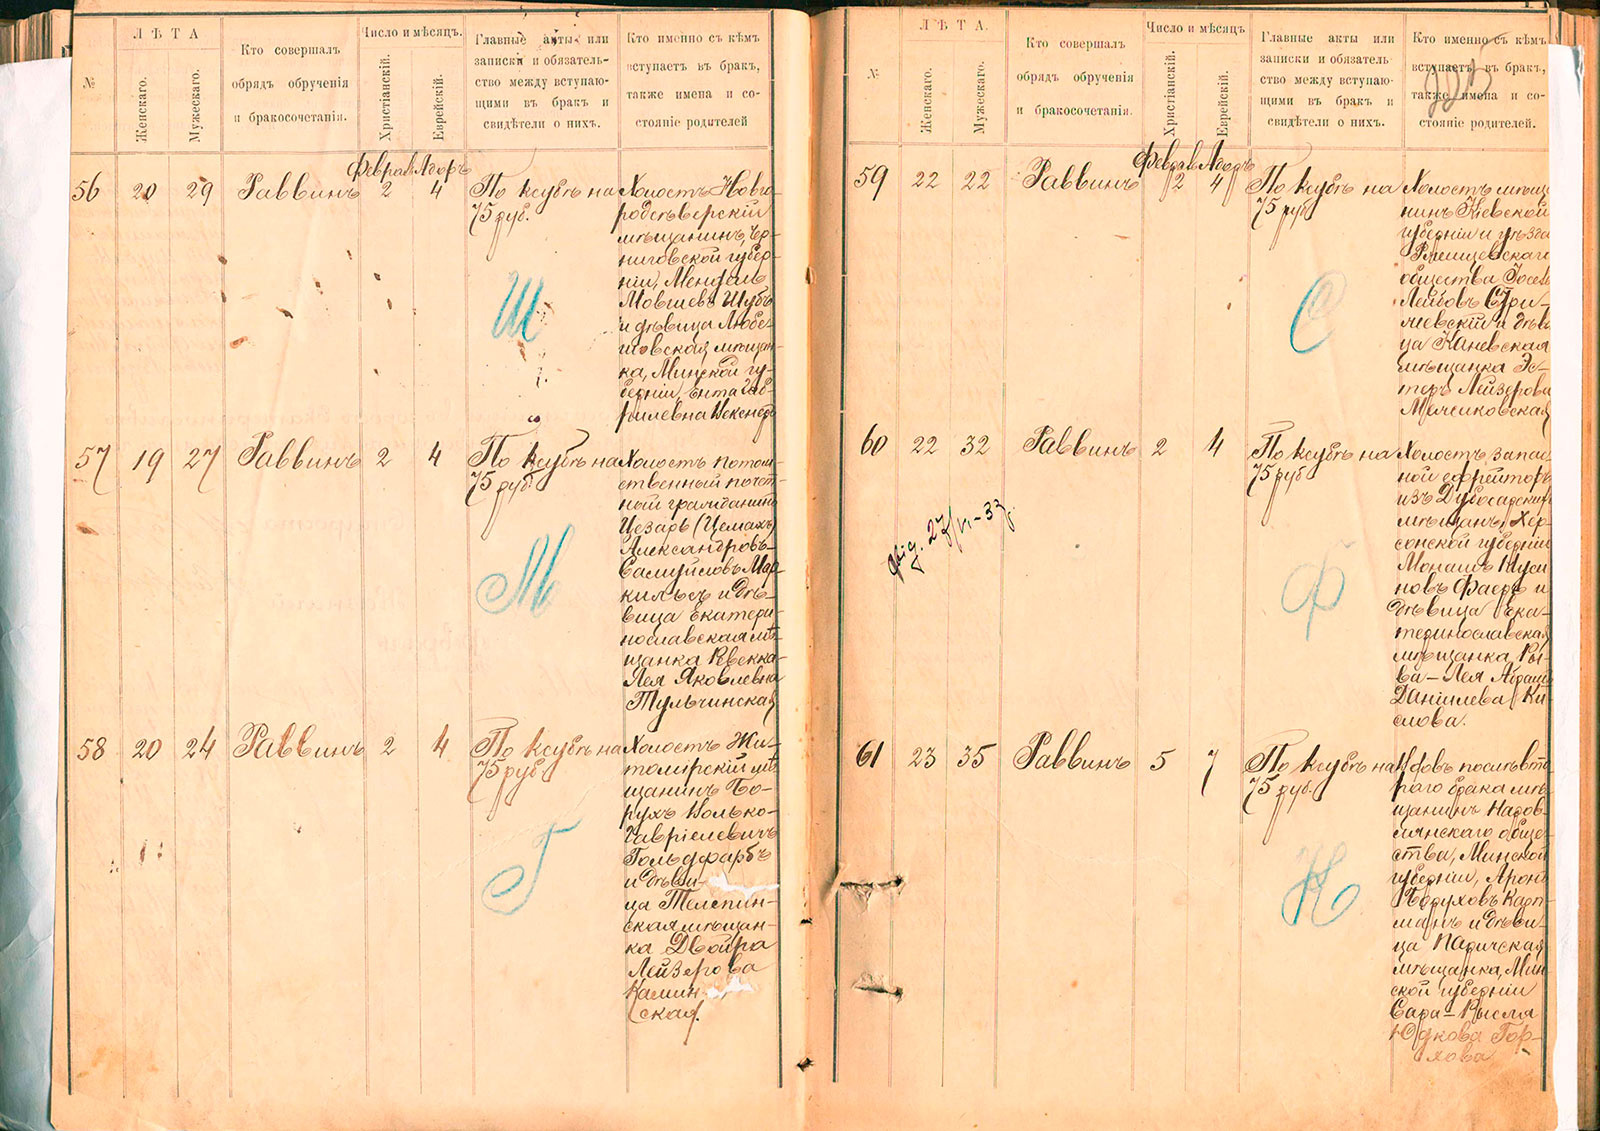 №
ЛѢТА
Женскаго.
Мужескаго.
Кто совершалъ
обрядъ обрученія
и бракосочетанія.
Число и мѣсяцъ.
Христіанскій.
Еврейскій.
Главные акты или
записки и обязатель-
ство между вступаю-
щими въ бракъ и
свидѣтели о нихъ.
Кто именно съ кѣмъ
вступаетъ въ бракъ,
также имена и со-
стояніе родителей
Февраль Адоръ
56 20 29 Раввинъ 2 4
По ксубѣ на
75 руб.
Ш
Холостъ Новго-
родсѣверскій
мѣщанинъ, Чер-
ниговской губер-
ніи, Мендель
Мовшевъ Шубъ
и дѣвица Любе-
шовская мѣщан-
ка, Минской гу-
берніи, Ента Гав-
риловна
57 19 27 Раввинъ 2 4
По ксубѣ на
75 руб.
М
Холостъ потом-
ственный почет-
ный гражданинъ
Цезарь (Цемахъ)
Александровъ-
Самуйловъ Мар-
кильсъ и дѣ-
вица Екатери-
нославская мѣ-
щанка Ревекка-
Лея Яковлевна
Тульчинская
58 20 24 Раввинъ 2 4
По ксубѣ на
75 руб.
Г
Холостъ Жи-
томірскій мѣ-
щанинъ Бо-
рухъ Волько-
Гавріелевичъ
Гольдфарбъ
и дѣви-
ца Телепин-
ская мѣщан-
ка Двойра
Лейзерова
Камин-
ская.
№
ЛѢТА.
Женскаго.
Мужескаго.
Кто совершалъ
обрядъ обрученія
и бракосочетанія.
Число и мѣсяцъ
Христіанскій.
Еврейскі.
Главные акты или
записки и обязатель-
ство между вступаю-
щими въ бракъ и
свидѣтели о нихъ.
Кто именно съ кѣмъ
вступаетъ въ бракъ,
также имена и со-
стояніе родителей.
Февраль Адоръ
59 22 22 Раввинъ 2 4
По ксубѣ на
75 руб
С
Холостъ мѣща-
нинъ Кіевской
губерніи и уѣзда
Ржищевскаго
общества Іосель
Лейбовъ Стри-
жевскій и дѣви-
ца Каневская
мѣщанка Эс-
теръ Лейзерова
60 22 32 Раввинъ 2 4
По ксубѣ на
75 руб
Ф
Холостъ запас-
ной ефрейторъ
изъ Дубосарскихъ
мѣщанъ, Хер-
сонской губерніи
Монашъ Нуси-
новъ Фаеръ и
дѣвица Ека-
теринославская
мѣщанка Ры-
ва-Лея Абрамъ
Даніилева Ки-
слова.
61 23 35 Раввинъ 5 7
По ксубѣ на
75 руб.
К
Вдовъ послѣ вто-
раго брака мѣ-
щанинъ Наров-
лянскаго обще-
ства, Минской
губерніи, Аронъ
Боруховъ Карп-
манъ и дѣви-
ца Паричская
мѣщанка, Мин-
ской губерніи
Сара-Рысля
Юдкова Гор-
лова